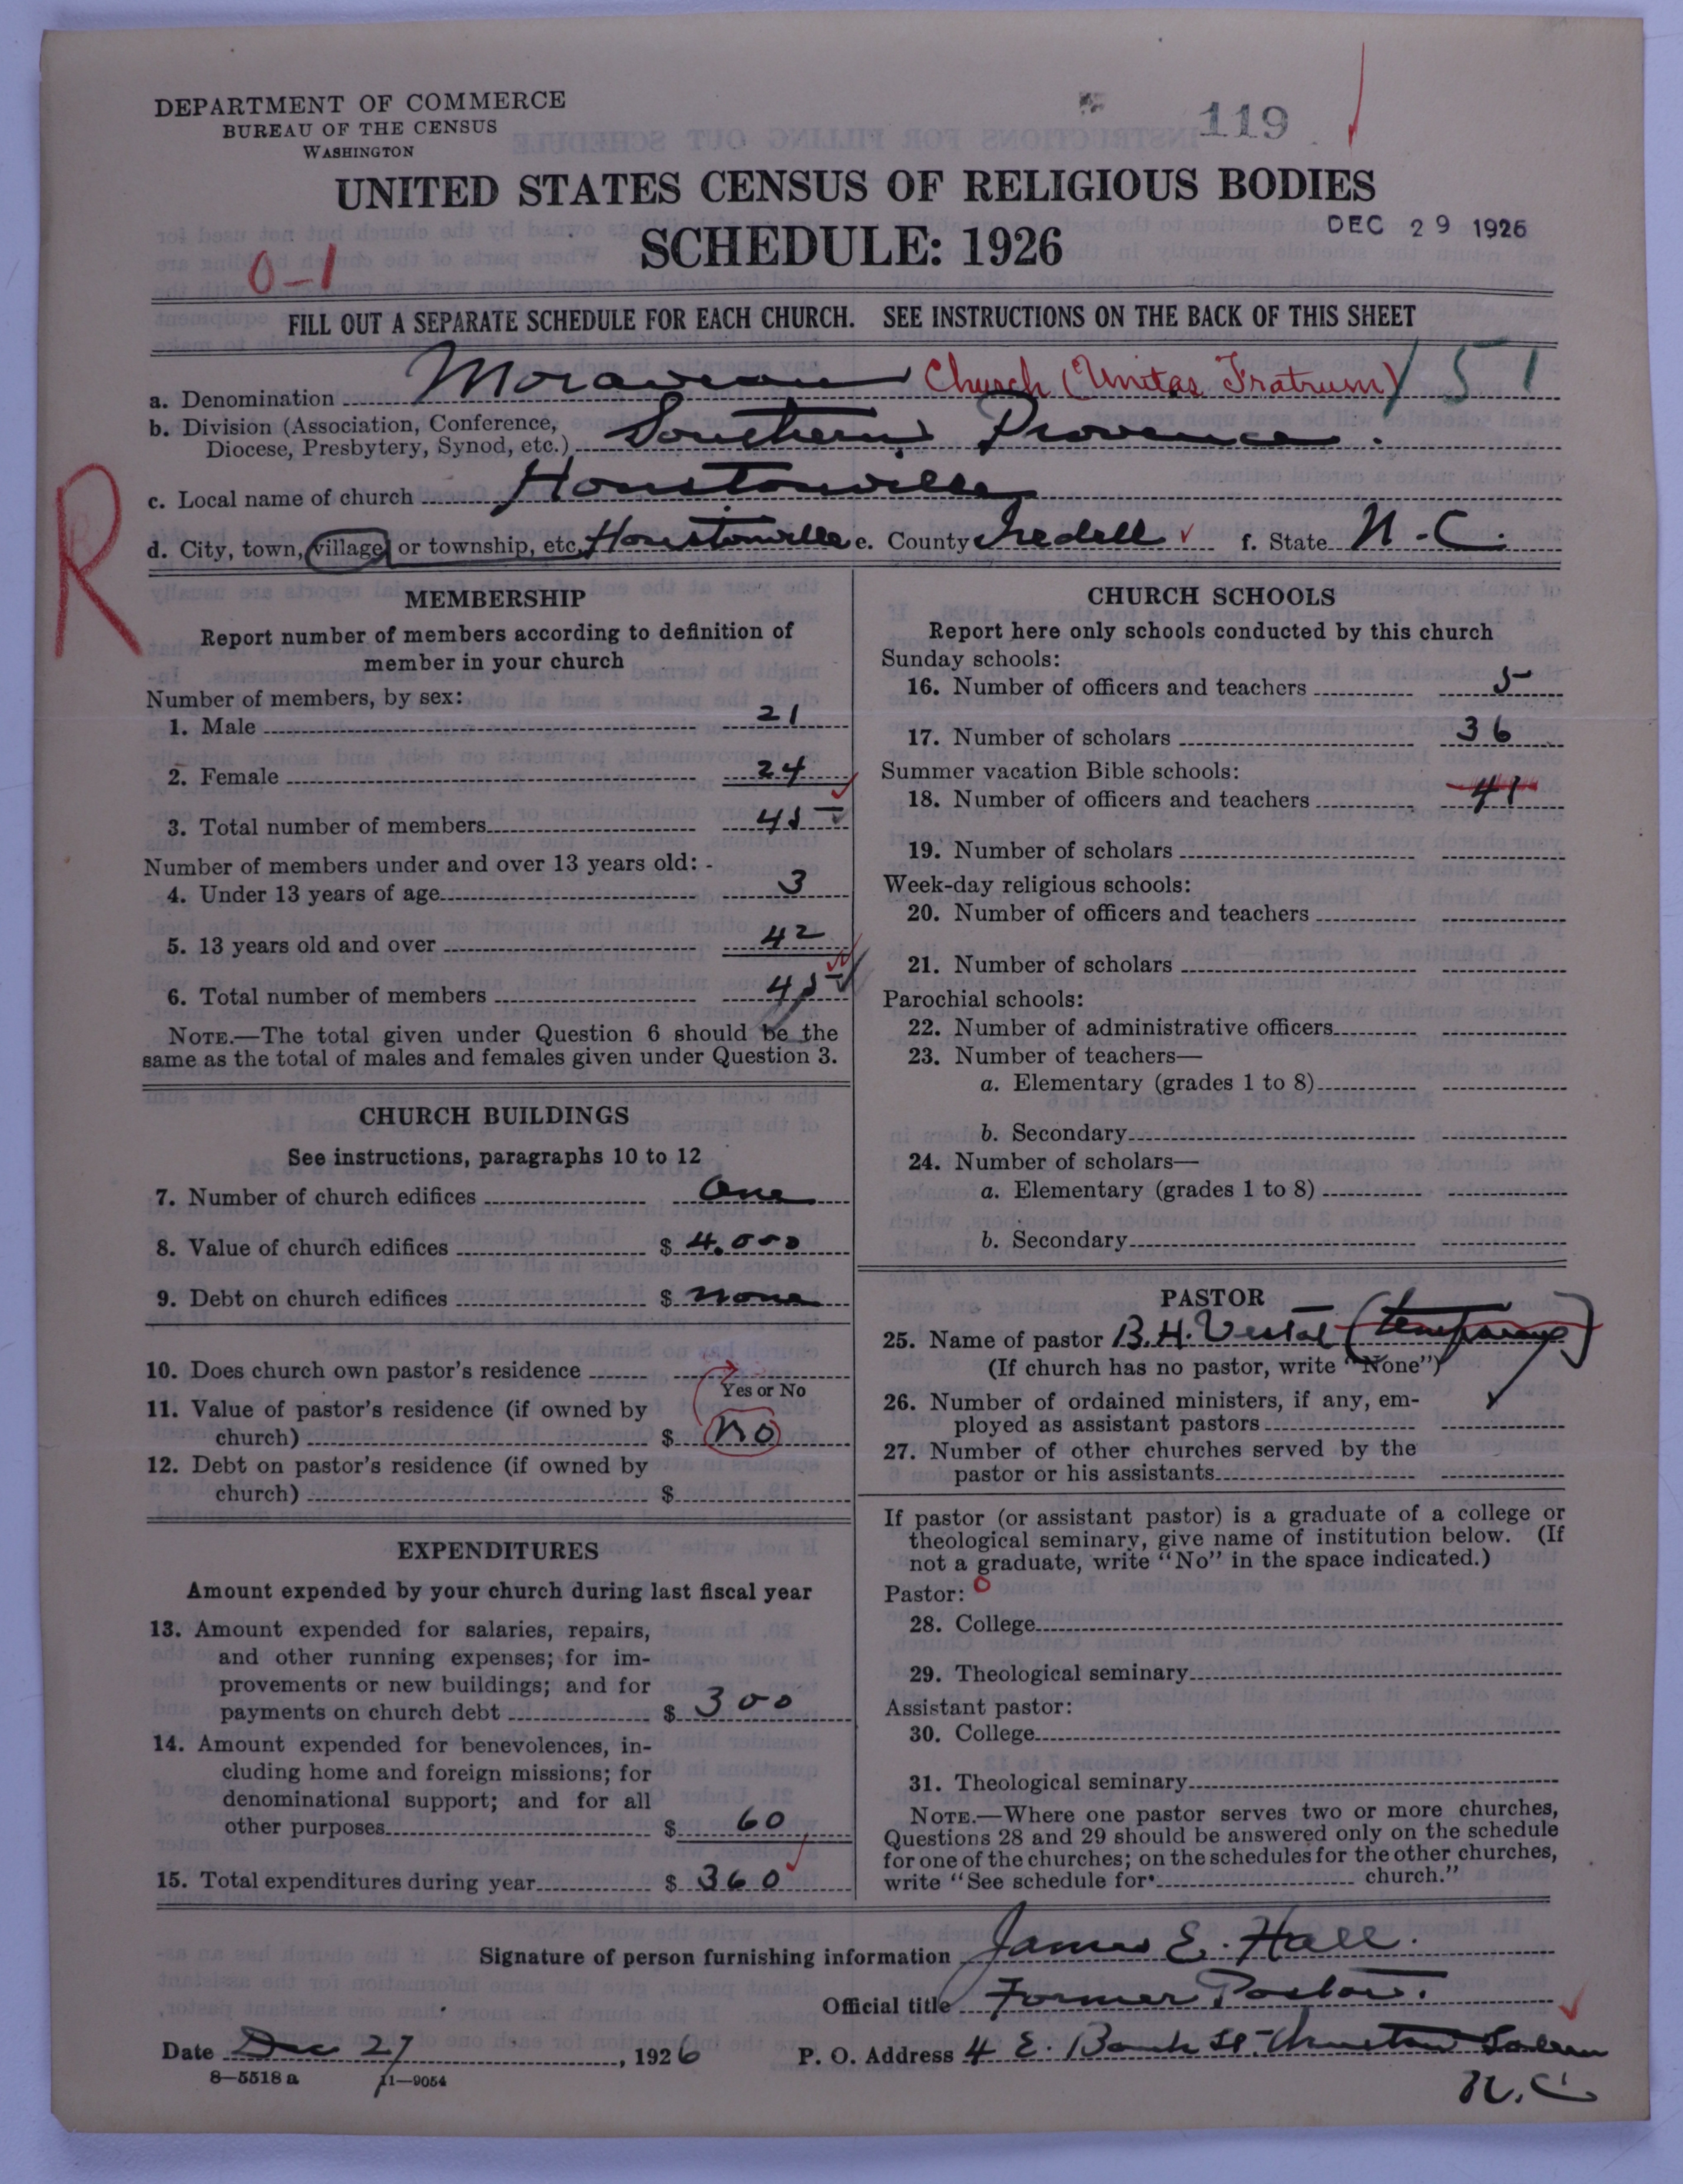 DEPARTMENT OF COMMERCE
BUREAU OF THE CENSUS
WASHINGTON
119
UNITED STATES CENSUS OF RELIGIOUS BODIES
SCHEDULE: 1926
DEC 29 1926
0-1
FILL OUT A SEPARATE SCHEDULE FOR EACH CHURCH. SEE INSTRUCTIONS ON THE BACK OF THIS SHEET
a. Denomination Moravian Church (Unitas Fratrum) 151
b. Division (Association, Conference,
Diocese, Presbytery, Synod, etc.) Southern Province.
c. Local name of church Houstonville
R
d. City, town, village, or township, etc. Houstonville e. County Iredell f. State N.C.
MEMBERSHIP
Report number of members according to definition of
member in your church
Number of members, by sex:
1. Male 21
2. Female 24
3. Total number of members 45
Number of members under and over 13 years old: -
4. Under 13 years of age 3
5. 13 years old and over 42
6. Total number of members 45
NOTE.—The total given under Question 6 should be the
same as the total of males and females given under Question 3.
CHURCH BUILDINGS
See instructions, paragraphs 10 to 12
7. Number of church edifices One
8. Value of church edifices $ 4.000
9. Debt on church edifices $ none
10. Does church own pastor's residence
Yes or No
11. Value of pastor's residence (if owned by
church) $ no
12. Debt on pastor's residence (if owned by
church) $
EXPENDITURES
Amount expended by your church during last fiscal year
13. Amount expended for salaries, repairs,
and other running expenses; for im-
provements or new buildings; and for
payments on church debt $ 300
14. Amount expended for benevolences, in-
cluding home and foreign missions; for
denominational support; and for all
other purposes $ 60
15. Total expenditures during year $ 360
CHURCH SCHOOLS
Report here only schools conducted by this church
Sunday schools:
16. Number of officers and teachers 5
17. Number of scholars 36
Summer vacation Bible schools:
18. Number of officers and teachers 41
19. Number of scholars
Week-day religious schools:
20. Number of officers and teachers
21. Number of scholars
Parochial schools:
22. Number of administrative officers
23. Number of teachers—
a. Elementary (grades 1 to 8)
b. Secondary
24. Number of scholars—
a. Elementary (grades 1 to 8)
b. Secondary
PASTOR
25. Name of pastor B.H. Vestal (temporary)
(If church has no pastor, write "None")
26. Number of ordained ministers, if any, em-
ployed as assistant pastors
27. Number of other churches served by the
pastor or his assistants
If pastor (or assistant pastor) is a graduate of a college or
theological seminary, give name of institution below. (If
not a graduate, write "No" in the space indicated.)
Pastor: 0
28. College
29. Theological seminary
Assistant pastor:
30. College
31. Theological seminary
NOTE.—Where one pastor serves two or more churches,
Questions 28 and 29 should be answered only on the schedule
for one of the churches; on the schedules for the other churches,
write "See schedule for church."
Signature of person furnishing information James E. Hall.
Official title Former Pastor.
Date Dec 27, 1926 P. O. Address 4 E. Bank St. Winston Salem
N.C.
8—5518 a 11—9054